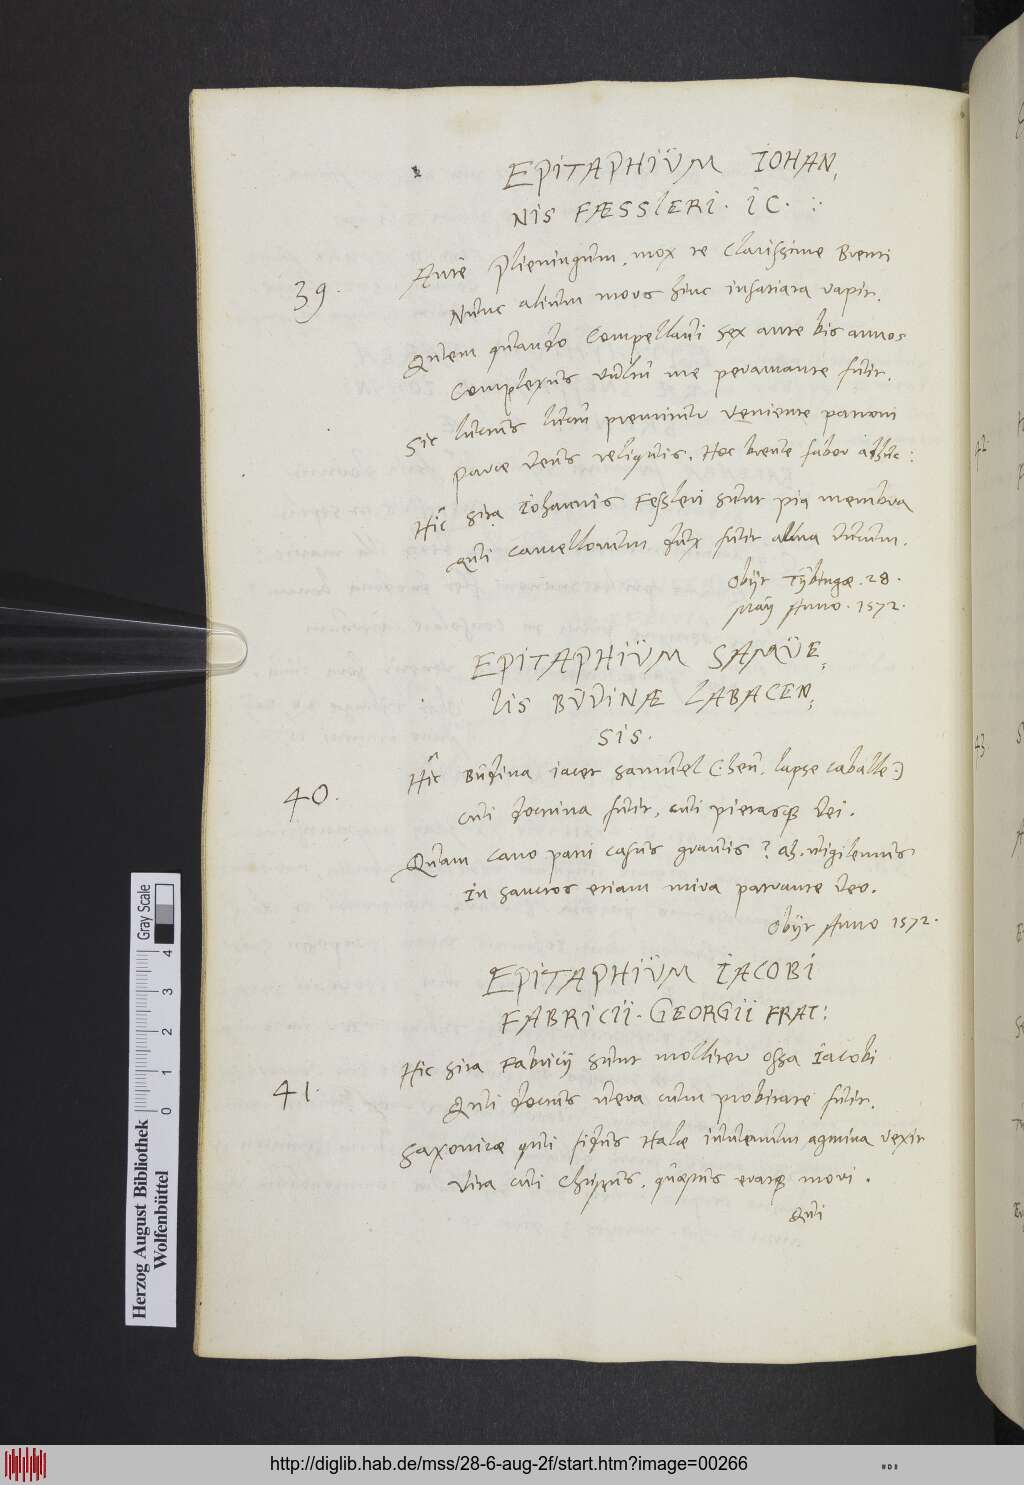 EPITAPHIŬM IOHAN,
NIS FÆSSLERI. IC.
39.
Ante Plieningum, mox te Clarissime Brenti
Nunc alium mors hinc insatiata rapit.
Quem quando Compellavi sex ante bis annos
Complexus vultu me peramante fuit.
Sic luctus luctu premitur veniente patroni
Parce Deus reliquis. Hoc breve saber adhuc:
Hîc sita Iohannis Fessleri sunt pia membra
Qui cancellorum dux fuit alma virum.
Obijt Tybingæ. 28.
Maij Anno. 1572.
EPITAPHIŬM SAMŬE,
LIS BŬDINÆ LABACEN,
SIS.
40.
Hîc Budina iacet Samuel (: heu, lapse caballe :)
Cui doctrina fuit, cui pietasq3 Dei.
Quam cano patri casus gravis? ah, vigilemus
In sanctos etiam mira patrante Deo.
Obijt Anno 1572.
EPITAPHIŬM IACOBI
FABRICII. GEORGII FRAT:
41.
Hic sita Fabricij sunt molliter ossa Iacobi
Qui doctus vera cum probitate fuit.
Saxonicæ qui fidus Halæ iuvenum agmina rexit
Vita cui Christus, quæstus eratq3 mori.
Qui
Herzog August Bibliothek
Wolfenbüttel
0 1 2 3 4
Gray Scale
42
43
http://diglib.hab.de/mss/28-6-aug-2f/start.htm?image=00266